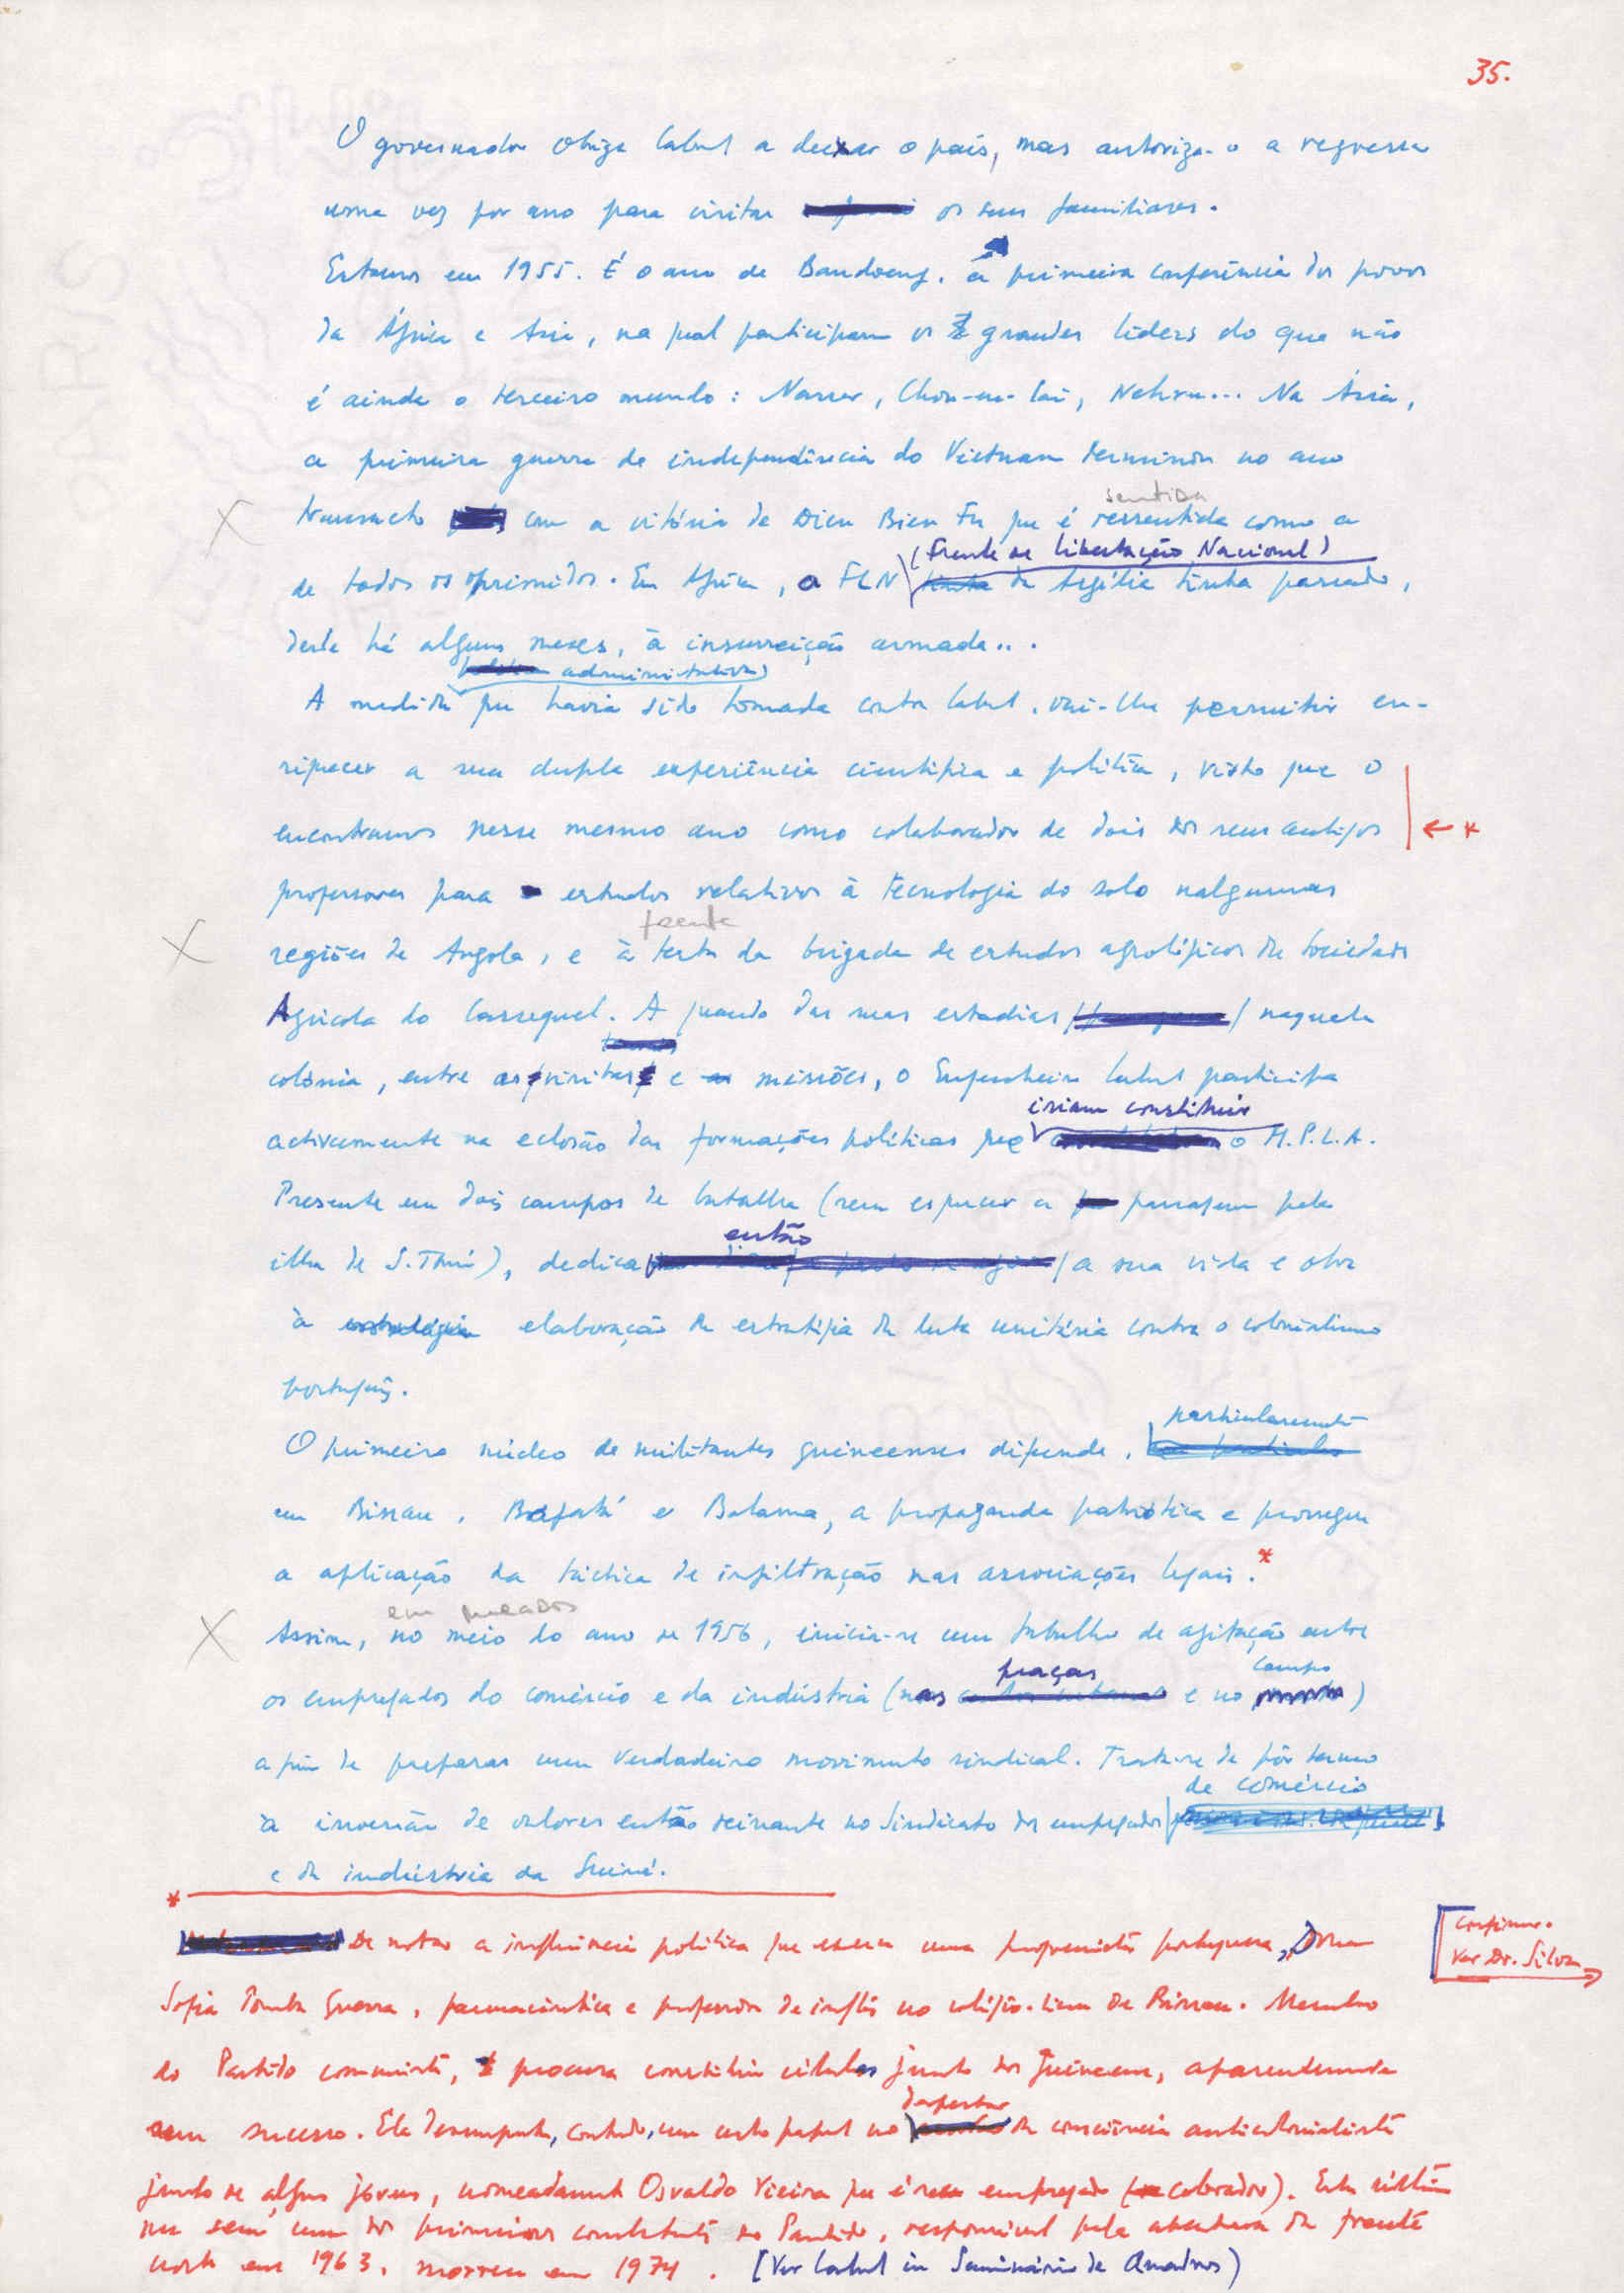 35.
O governador obriga Cabral a deixar o país, mas autoriza-o a regressar
uma vez por ano para visitar os seus familiares.
Estamos em 1955. É o ano de Bandoeng, a primeira conferência dos povos
da África e Ásia, na qual participam os grandes líderes do que não
é ainda o terceiro mundo : Nasser, Chou-en-lai, Nehru... Na Ásia,
a primeira guerra de independência do Vietnam terminou no ano
sentida
transacto com a vitória de Dien Bien Fu que é ressentida como a
(Frente de Libertação Nacional)
de todos os oprimidos. Em África, a FLN da Argélia tinha passado,
desde há alguns meses, à insurreição armada...
administrativa
A medida que havia sido tomada contra Cabral, vai-lhe permitir en-
riquecer a sua dupla experiência científica e política, visto que o
encontramos nesse mesmo ano como colaborador de dois dos seus antigos
← *
professores para estudos relativos à tecnologia do solo nalgumas
frente
regiões de Angola, e à testa da brigada de estudos agrológicos da Sociedade
Agrícola do Cassequel. A quando das suas estadias naquela
colónia, entre as visitas e missões, o Engenheiro Cabral participa
iriam constituir
activamente na eclosão das formações políticas que o M.P.L.A.
Presente em dois campos de batalha (sem esquecer a passagem pela
então
ilha de S. Tomé), dedica a sua vida e obra
à elaboração da estratégia da luta unitária contra o colonialismo
português.
particularmente
O primeiro núcleo de militantes guineenses difunde,
em Bissau, Bafatá e Bolama, a propaganda patriótica e prossegue
a aplicação da táctica de infiltração nas associações legais. *
em meados
Assim, no meio do ano de 1956, inicia-se um trabalho de agitação entre
praças campo
os empregados do comércio e da indústria (nas e no )
a fim de preparar um verdadeiro movimento sindical. Trata-se de pôr termo
de comércio
à inversão de valores então reinante no Sindicato dos empregados
e da indústria da Guiné.
*
De notar a influência política que exerce uma progressista portuguesa, Dona
Confirmar.
Ver Dr. Silva
Sofia Pomba Guerra, farmacêutica e professora de inglês no colégio-liceu de Bissau. Membro
do Partido comunista, procura constituir células junto dos guineenses, aparentemente
despertar
sem sucesso. Ela desempenha, contudo, um certo papel no da consciência anticolonialista
junto de alguns jovens, nomeadamente Osvaldo Vieira que é seu empregado (cobrador). Este último
será um dos primeiros combatentes do Partido, responsável pela abertura da frente
norte em 1963. morreu em 1974. (Ver Cabral in Seminário de Quadros)